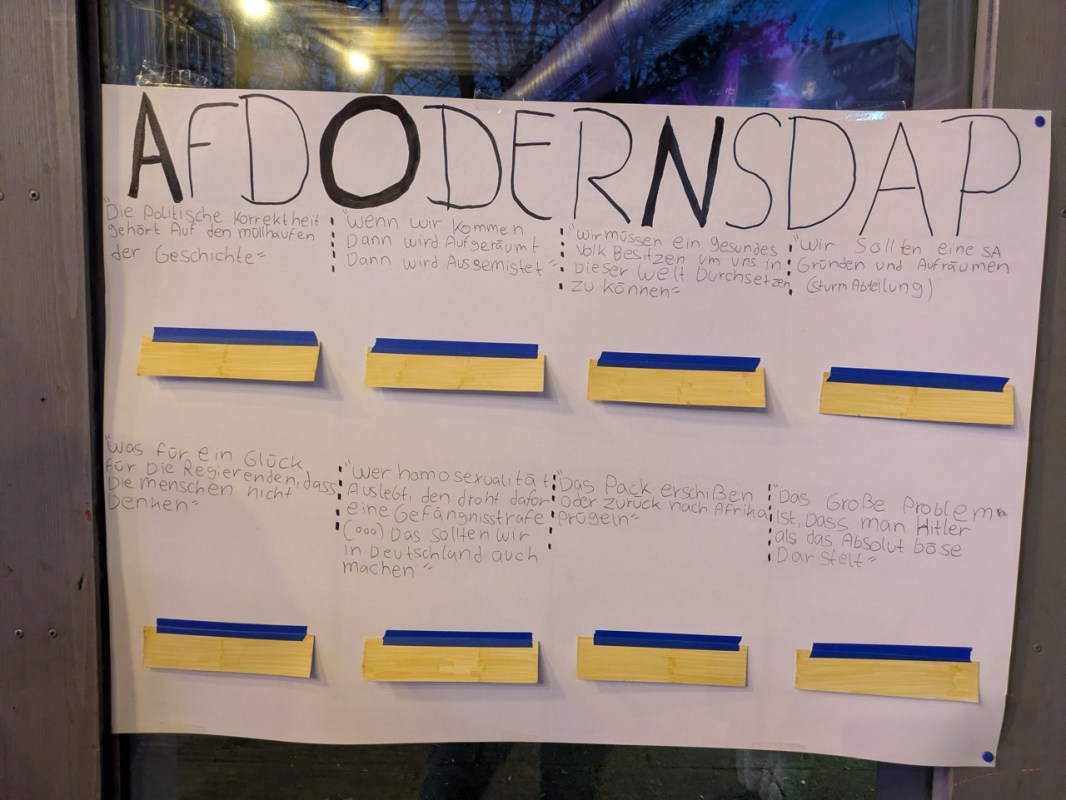 AFDODERNSDAP
"Die Politische Korrektheit
gehört Auf den müllhaufen
der Geschichte"
"Wenn wir Kommen
Dann wird Aufgeräumt
Dann wird Ausgemistet"
"Wir müssen ein gesundes
Volk Besitzen um uns in
Dieser Welt Durchsetzen
zu können"
"Wir Sollten eine SA
Gründen und Aufräumen
(Sturm Abteilung)
"Was für ein Glück
für Die Regierenden, dass
Die menschen nicht
Denken"
"Wer homosexualität
Auslebt, den droht dafor
eine Gefängnisstrafe
(ooo) Das sollten wir
in Deutschland auch
machen"
"Das Pack erschißen
oder zurück nach Afrika
Prügeln"
"Das Große Problem
ist, Dass man Hitler
als das Absolut böse
Dar stelt"